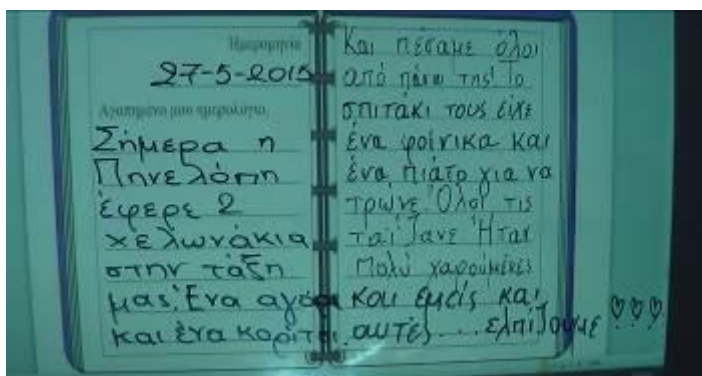 Ημερομηνία
27-5-2015
Αγαπημένο μου ημερολόγιο,
Σήμερα η
Πηνελόπη
έφερε 2
χελωνάκια
στην τάξη
μας. Ένα αγόρι
και ένα κορίτσι.
Και πέσαμε όλοι
από πάνω της! Το
σπιτάκι τους είχε
ένα φοίνικα και
ένα πιάτο για να
τρώνε. Όλοι τις
ταΐζανε. Ήταν
πολύ χαρούμενες
και εμείς και
αυτές... ελπίζουμε